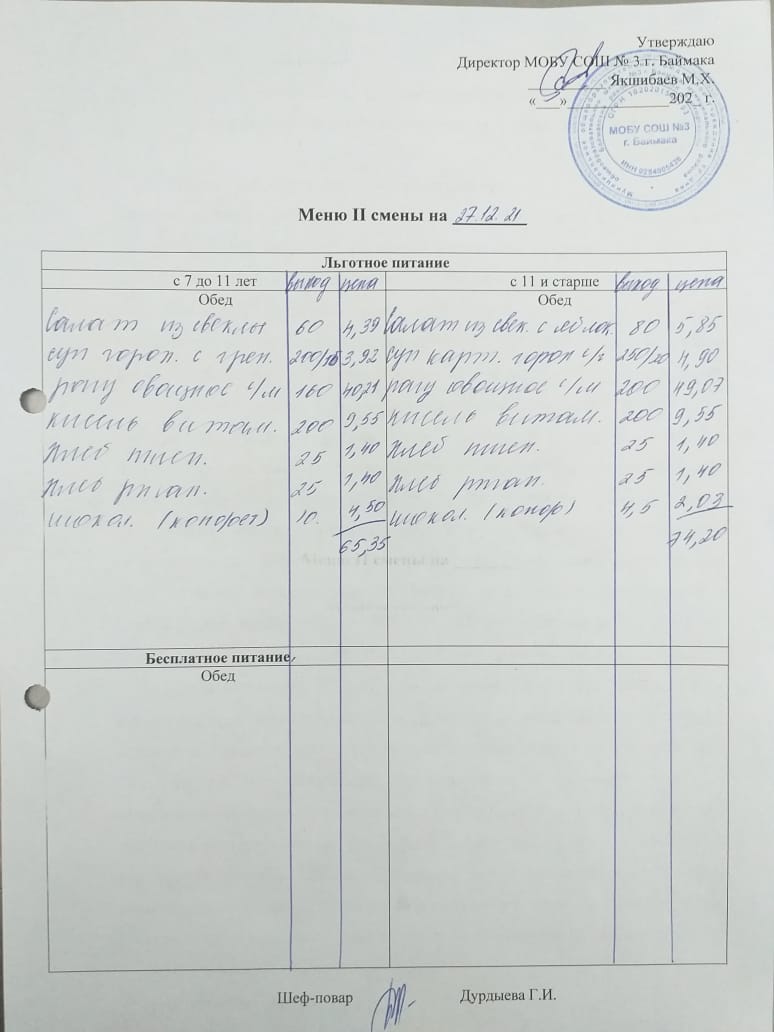 Утверждаю
Директор МОБУ СОШ № 3 г. Баймака
Якшибаев М.Х.
«___»_______________202_ г.
МОБУ СОШ №3
г. Баймака
ИНН 0254005426
Меню II смены на 27.12.21
Льготное питание
с 7 до 11 лет выход цена с 11 и старше выход цена
Обед Обед
Салат из свеклы 60 4,39 Салат из свек. с яблок. 80 5,85
суп горох. с грен. 200/15 3,92 суп карт. горох с/г 250/20 4,90
рагу овощное с/м 160 40,21 рагу овощное с/м 200 49,07
кисель витам. 200 9,55 кисель витам. 200 9,55
хлеб пшен. 25 1,40 хлеб пшен. 25 1,40
хлеб ржан. 25 1,40 хлеб ржан. 25 1,40
шокол. (конфет) 10 4,50 шокол. (конфр) 4,5 2,03
65,35 74,20
Бесплатное питание
Обед
Шеф-повар Дурдыева Г.И.